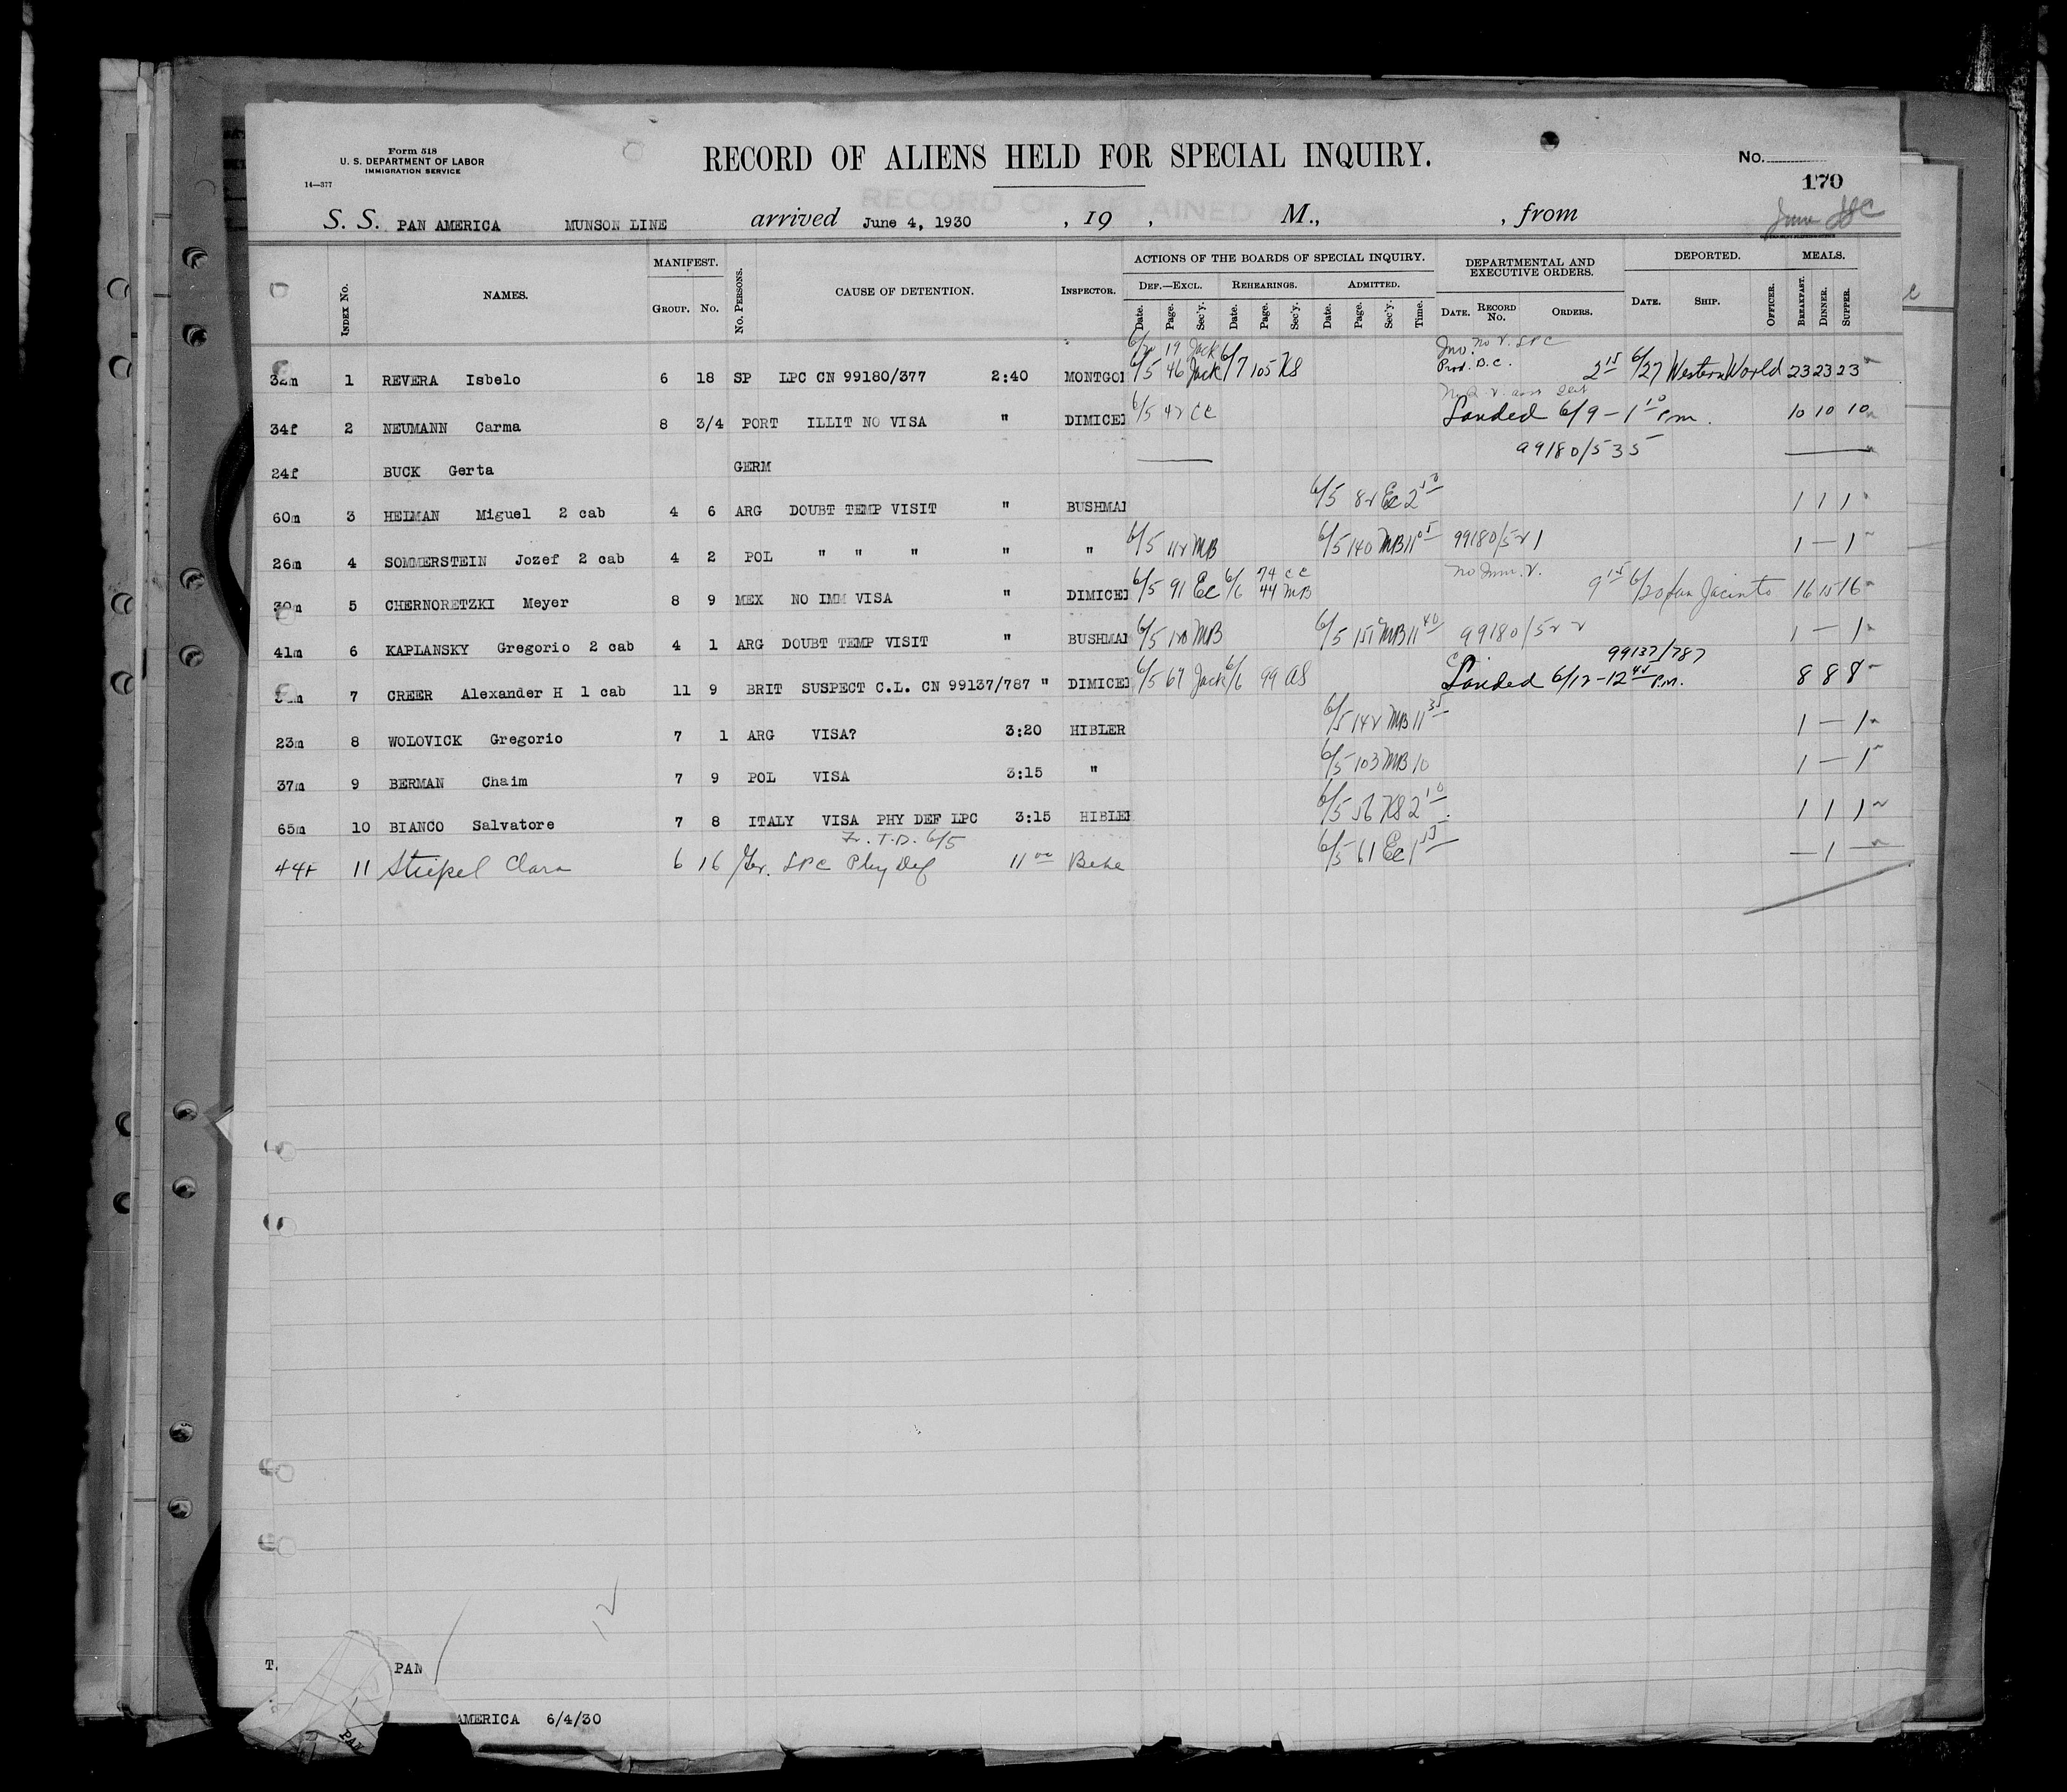 Form 518
U. S. DEPARTMENT OF LABOR
IMMIGRATION SERVICE
14—377
RECORD OF ALIENS HELD FOR SPECIAL INQUIRY.
No.
170
S. S. PAN AMERICA MUNSON LINE arrived June 4, 1930 , 19 , M., , from
INDEX No. NAMES. MANIFEST. GROUP. No. No. PERSONS. CAUSE OF DETENTION. INSPECTOR. ACTIONS OF THE BOARDS OF SPECIAL INQUIRY. DEF.—EXCL. REHEARINGS. ADMITTED. Date. Page. Sec'y. Date. Page. Sec'y. Date. Page. Sec'y. Time. DEPARTMENTAL AND EXECUTIVE ORDERS. DATE. RECORD No. ORDERS. DEPORTED. DATE. SHIP. OFFICER. MEALS. BREAKFAST. DINNER. SUPPER.
6/20 19 Jack
32m 1 REVERA Isbelo 6 18 SP LPC CN 99180/377 2:40 MONTGO 6/5 46 Jack 6/7 105 KS 2 15 6/27 Western World 23 23 23
34f 2 NEUMANN Carma 8 3/4 PORT ILLIT NO VISA " DIMICE 6/5 42 CC Landed 6/9 - 1 10 Pm. 10 10 10
24f BUCK Gerta GERM 99180/535
60m 3 HELMAN Miguel 2 cab 4 6 ARG DOUBT TEMP VISIT " BUSHMA 6/5 82 Ec 2 10 1 1 1
26m 4 SOMMERSTEIN Jozef 2 cab 4 2 POL " " " " " 6/5 112 MB 6/5 140 MB 11 05 99180/521 1 — 1
74 CC
39m 5 CHERNORETZKI Meyer 8 9 MEX NO IMM VISA " DIMICE 6/5 91 Ec 6/6 44 MB no Imm. V. 9 15 6/20 San Jacinto 16 15 16
41m 6 KAPLANSKY Gregorio 2 cab 4 1 ARG DOUBT TEMP VISIT " BUSHMA 6/5 120 MB 6/5 151 MB 11 40 99180/522 1 — 1
99137/787
7 CREER Alexander H 1 cab 11 9 BRIT SUSPECT C.L. CN 99137/787 " DIMICE 6/5 67 Jack 6/6 99 AS Landed 6/12 - 12 45 P.M. 8 8 8
23m 8 WOLOVICK Gregorio 7 1 ARG VISA? 3:20 HIBLER 6/5 142 MB 11 35 1 — 1
37m 9 BERMAN Chaim 7 9 POL VISA 3:15 " 6/5 103 MB 10 1 — 1
65m 10 BIANCO Salvatore 7 8 ITALY VISA PHY DEF LPC 3:15 HIBLER 6/5 56 KS 2 10 1 1 1
Fr. T.D. 6/5
44f 11 Stiepel Clara 6 16 Ger. LPC Phy Def 11 00 6/5 61 Ec 1 15 — 1 —
12
PAN
AMERICA 6/4/30
PAN